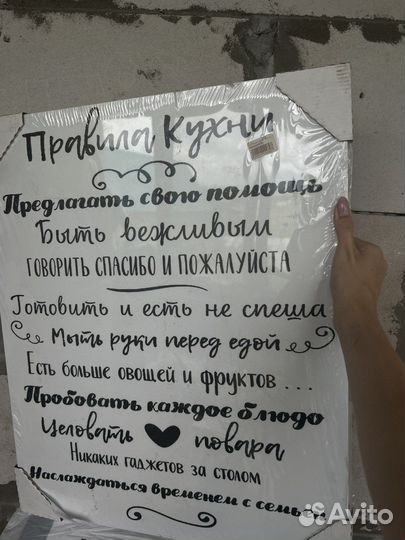 Правила Кухни
Предлагать свою помощь
Быть вежливым
ГОВОРИТЬ СПАСИБО И ПОЖАЛУЙСТА
Готовить и есть не спеша
Мыть руки перед едой
Есть больше овощей и фруктов ...
Пробовать каждое блюдо
Целовать повара
Никаких гаджетов за столом
Наслаждаться временем с семьёй
Avito